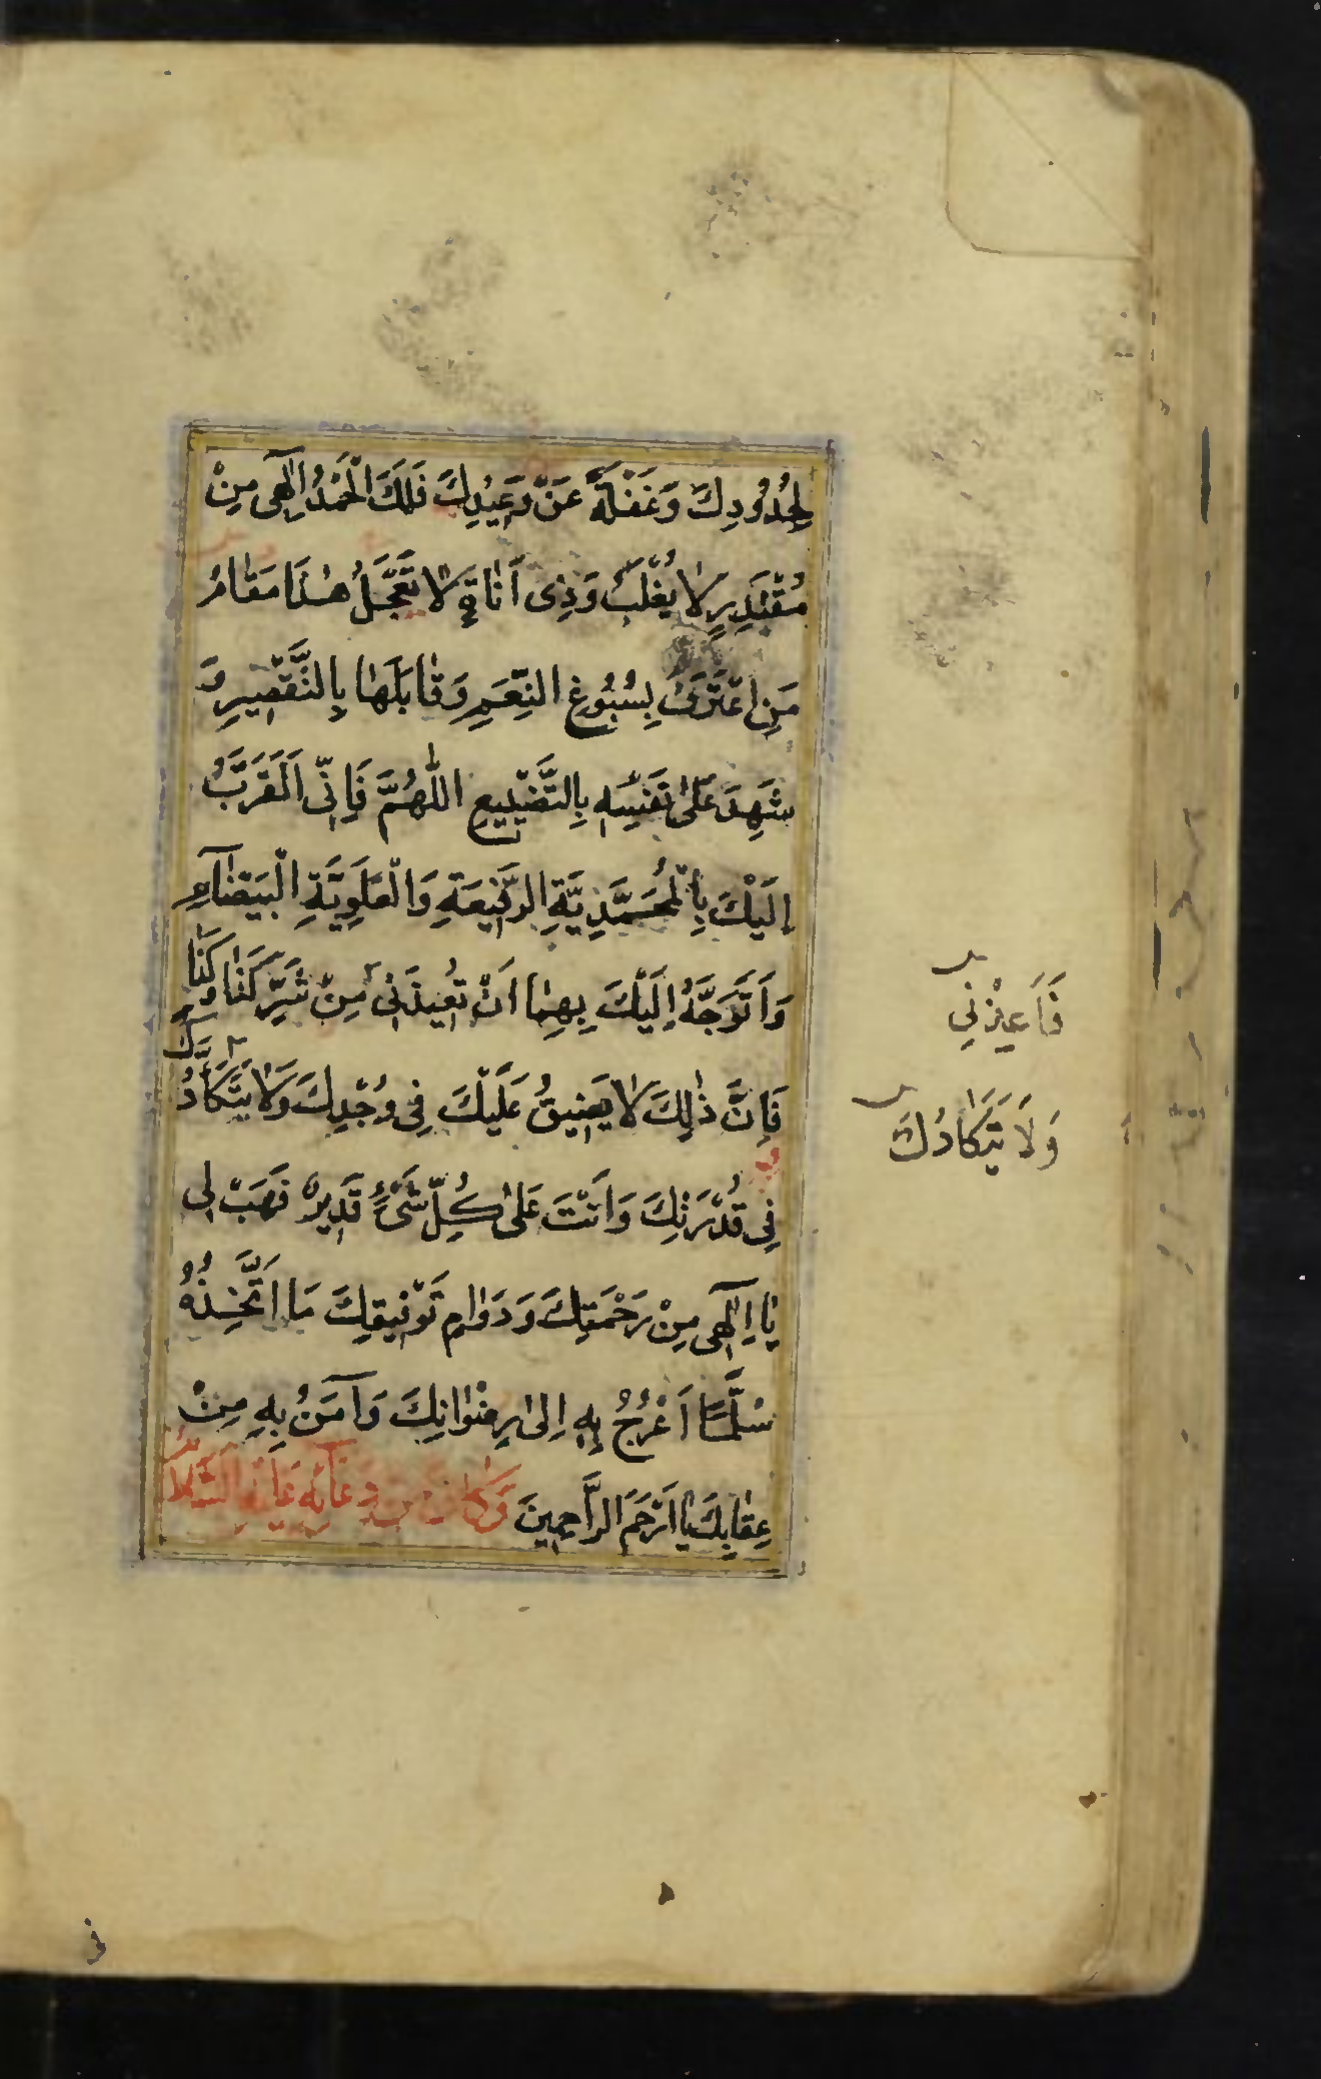 لِحُدُودِكَ وَغَفْلَةً عَنْ وَعِيْدِكَ فَلَكَ الْحَمْدُ اِلٰهِى مِنْ
مُقْتَدِرٍ لَا يُغْلَبُ وَذِى اَنَاةٍ لَا تَعْجَلُ هٰذَا مَقَامُ
مَنِ اعْتَرَفَ بِسُبُوغِ النِّعَمِ وَقَابَلَهَا بِالتَّقْصِيرِ وَ
شَهِدَ عَلىٰ نَفْسِهِ بِالتَّضْيِيعِ اللّٰهُمَّ فَاِنِّى اَتَقَرَّبُ
اِلَيْكَ بِالْمُحَمَّدِيَّةِ الرَّفِيعَةِ وَالْعَلَوِيَّةِ الْبَيْضَآءِ
وَاَتَوَجَّهُ اِلَيْكَ بِهِمَا اَنْ تُعِيذَنِى مِنْ شَرِّ كَذَا وَكَذَا
فَاَعِذْنِي
فَاِنَّ ذٰلِكَ لَا يَضِيقُ عَلَيْكَ فِى وُجْدِكَ وَلَا يَتَكَأَّدُكَ
وَلَا يَتَكَادُكَ
فِى قُدْرَتِكَ وَاَنْتَ عَلىٰ كُلِّ شَىْءٍ قَدِيرٌ فَهَبْ لِى
يَا اِلٰهِى مِنْ رَحْمَتِكَ وَدَوَامِ تَوْفِيقِكَ مَا اَتَّخِذُهُ
سُلَّمًا اَعْرُجُ بِهِ اِلىٰ رِضْوَانِكَ وَآمَنُ بِهِ مِنْ
عِقَابِكَ يَا اَرْحَمَ الرَّاحِمِينَ وَكَانَ مِنْ دُعَآئِهِ عَلَيْهِ السَّلَامُ